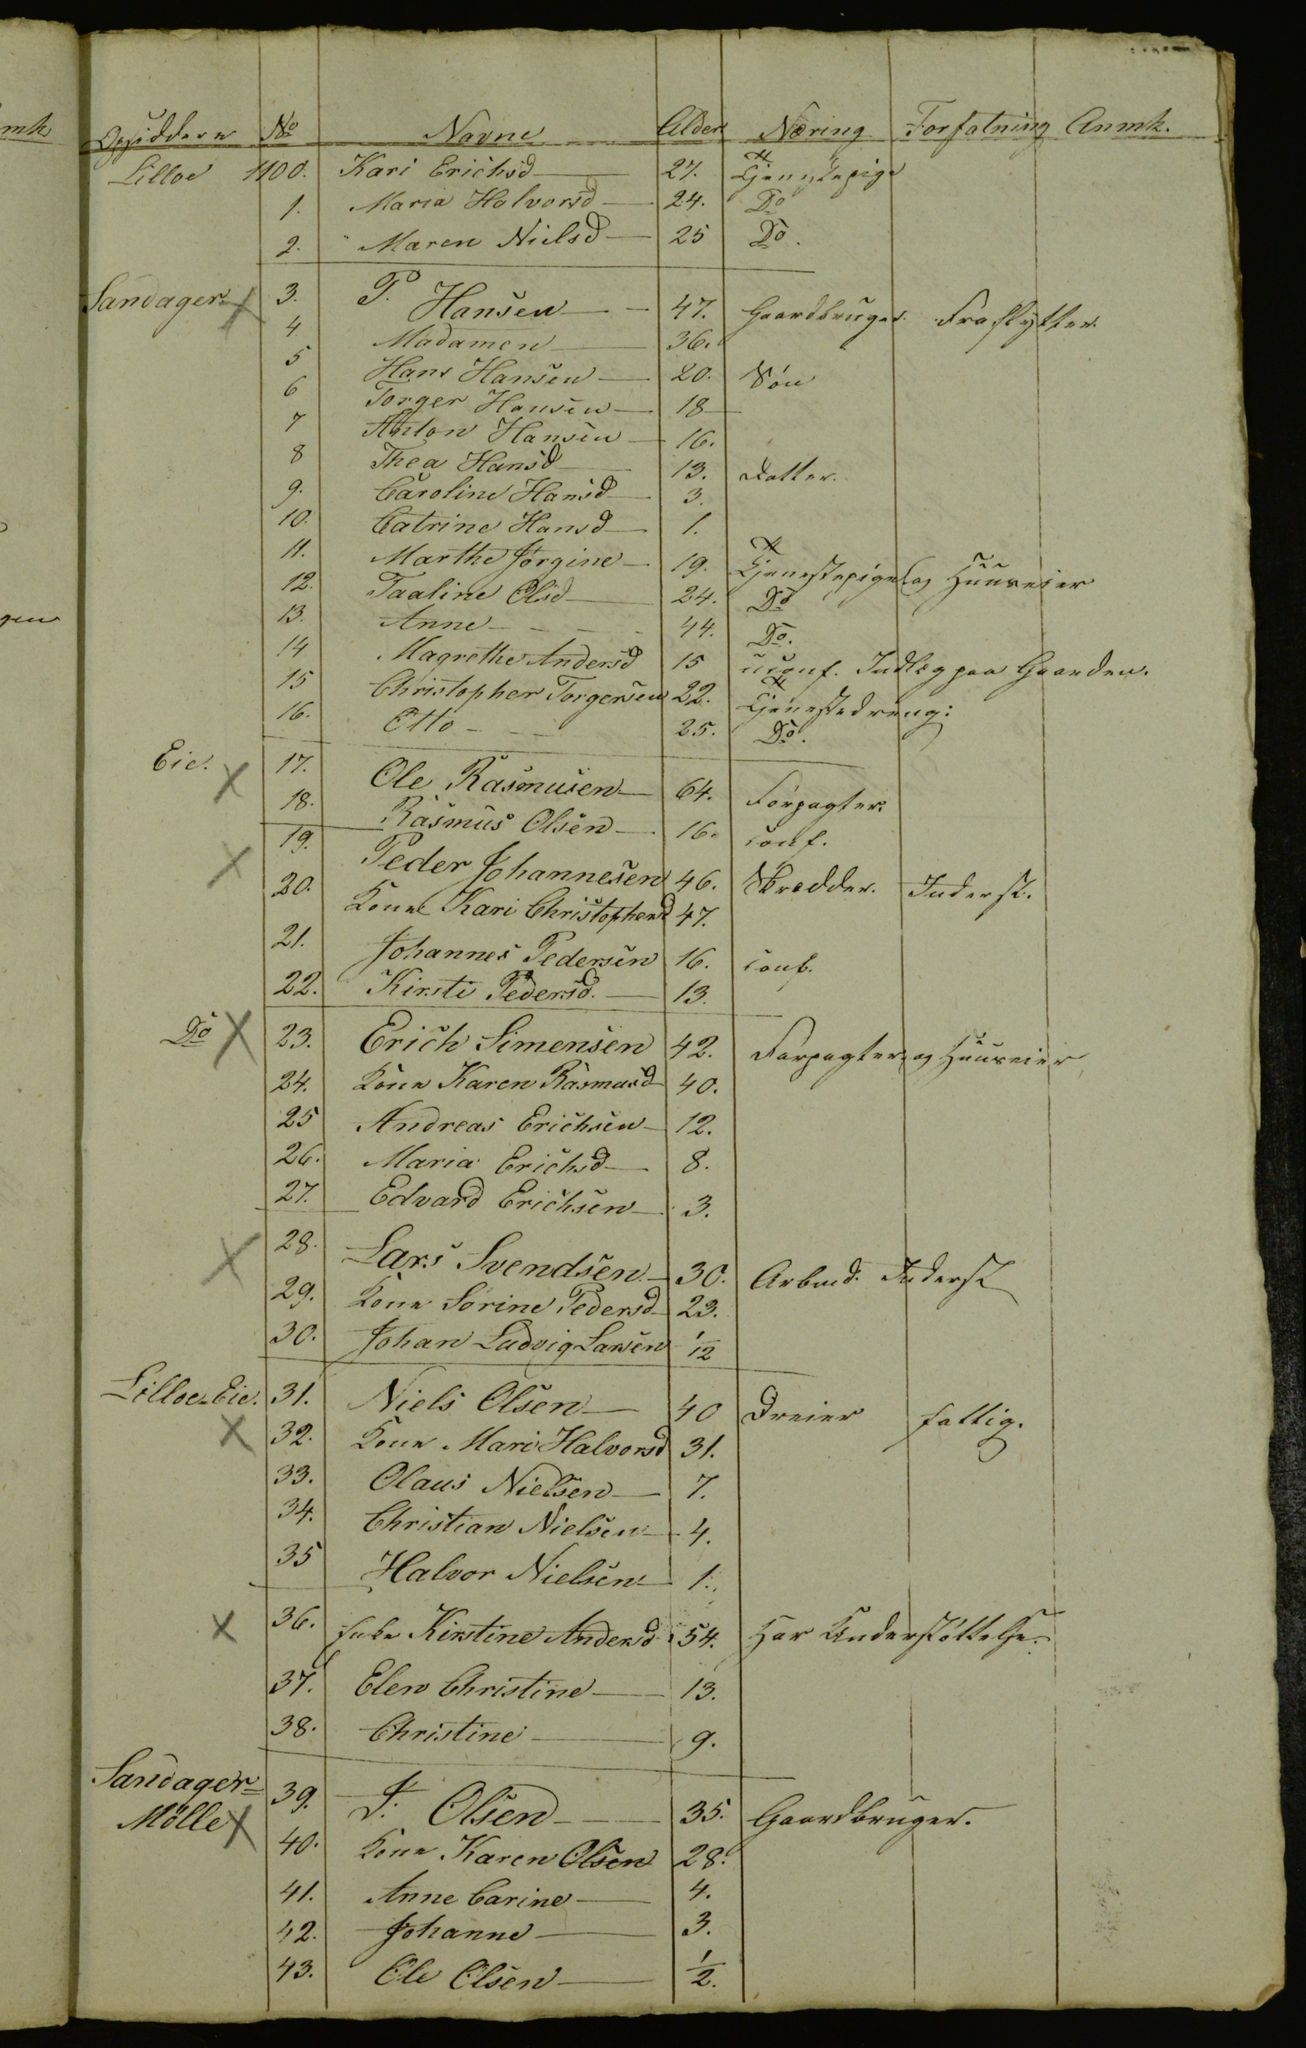 Opsiddere No Navne Alder Næring Forfatning Anmk.
Lilloe 1100. Kari Erichsd 27. Tjenestepige
1. Maria Halvorsd 24. Do
2. Maren Nielsd 25 Do.
Sandager 3. P. Hansen 47. Gaardbruger. Fraflytter.
4 Madamen 36.
5 Hans Hansen 20. Søn
6 Torger Hansen 18
7 Anton Hansen 16.
8 Thea Hansd 13. Datter.
9. Caroline Hansd 3.
10. Catrine Hansd 1.
11. Marthe Jørgine 19. Tjenestepige og Huuseier
12. Taaline Olsd 24. Do
13. Anne 44. Do.
14 Magrethe Andersd 15 uconf. Indlæg paa Gaarden.
15 Christopher Torgersen 22. Tjenestedreng:
16. Otto 25. Do.
Eie. 17. Ole Rasmusen 64. Forpagter.
18. Rasmus Olsen 16. conf.
19. Peder Johannesen 46. Skrædder. Inderst.
20. Kone Kari Christophersd 47.
21. Johannes Pedersen 16. conf.
22. Kirsti Pedersd. 13.
Do 23. Erich Simensen 42. Forpagter og Huuseier
24. Kone Karen Rasmusd 40.
25 Andreas Erichsen 12.
26. Maria Erichsd 8.
27. Edvard Erichsen 3.
28. Lars Svendsen 30. Arbmd. Inderst
29. Kone Sørine Pedersd 23.
30. Johan Ludvig Larsen 1/12
Lilloe-Eie. 31. Niels Olsen 40 Dreier fattig.
32. Kone Mari Halvorsd 31.
33. Olaus Nielsen 7.
34. Christian Nielsen 4.
35 Halvor Nielsen 1.
36. Kirstine Andersd 54. Har Understøttelse.
37. Elen Christine 13.
38. Christine 9.
Sandager= 39. J. Olsen 35. Gaardbruger.
Mølle 40. Kone Karen Olsen 28.
41. Anne Carine 4.
42. Johanne 3.
43. Ole Olsen 1/2.